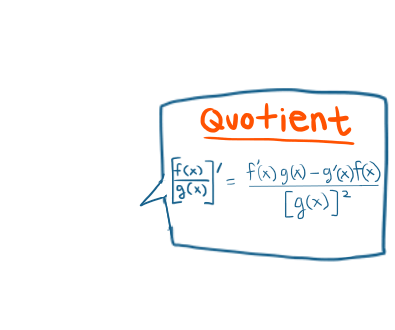 Quotient
[f(x)/g(x)]' = f'(x)g(x) - g'(x)f(x)/[g(x)]²